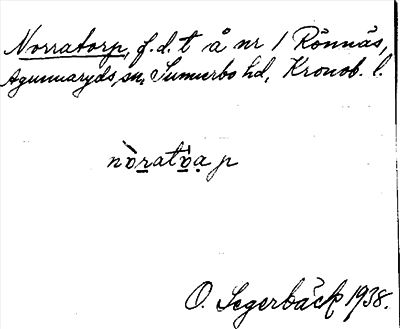 Norratorp, f.d. t å nr 1 Rönnäs,
Agunnaryds sn, Sunnerbo hd, Kronob. l.
nòratòap
O. Segerbäck 1938.